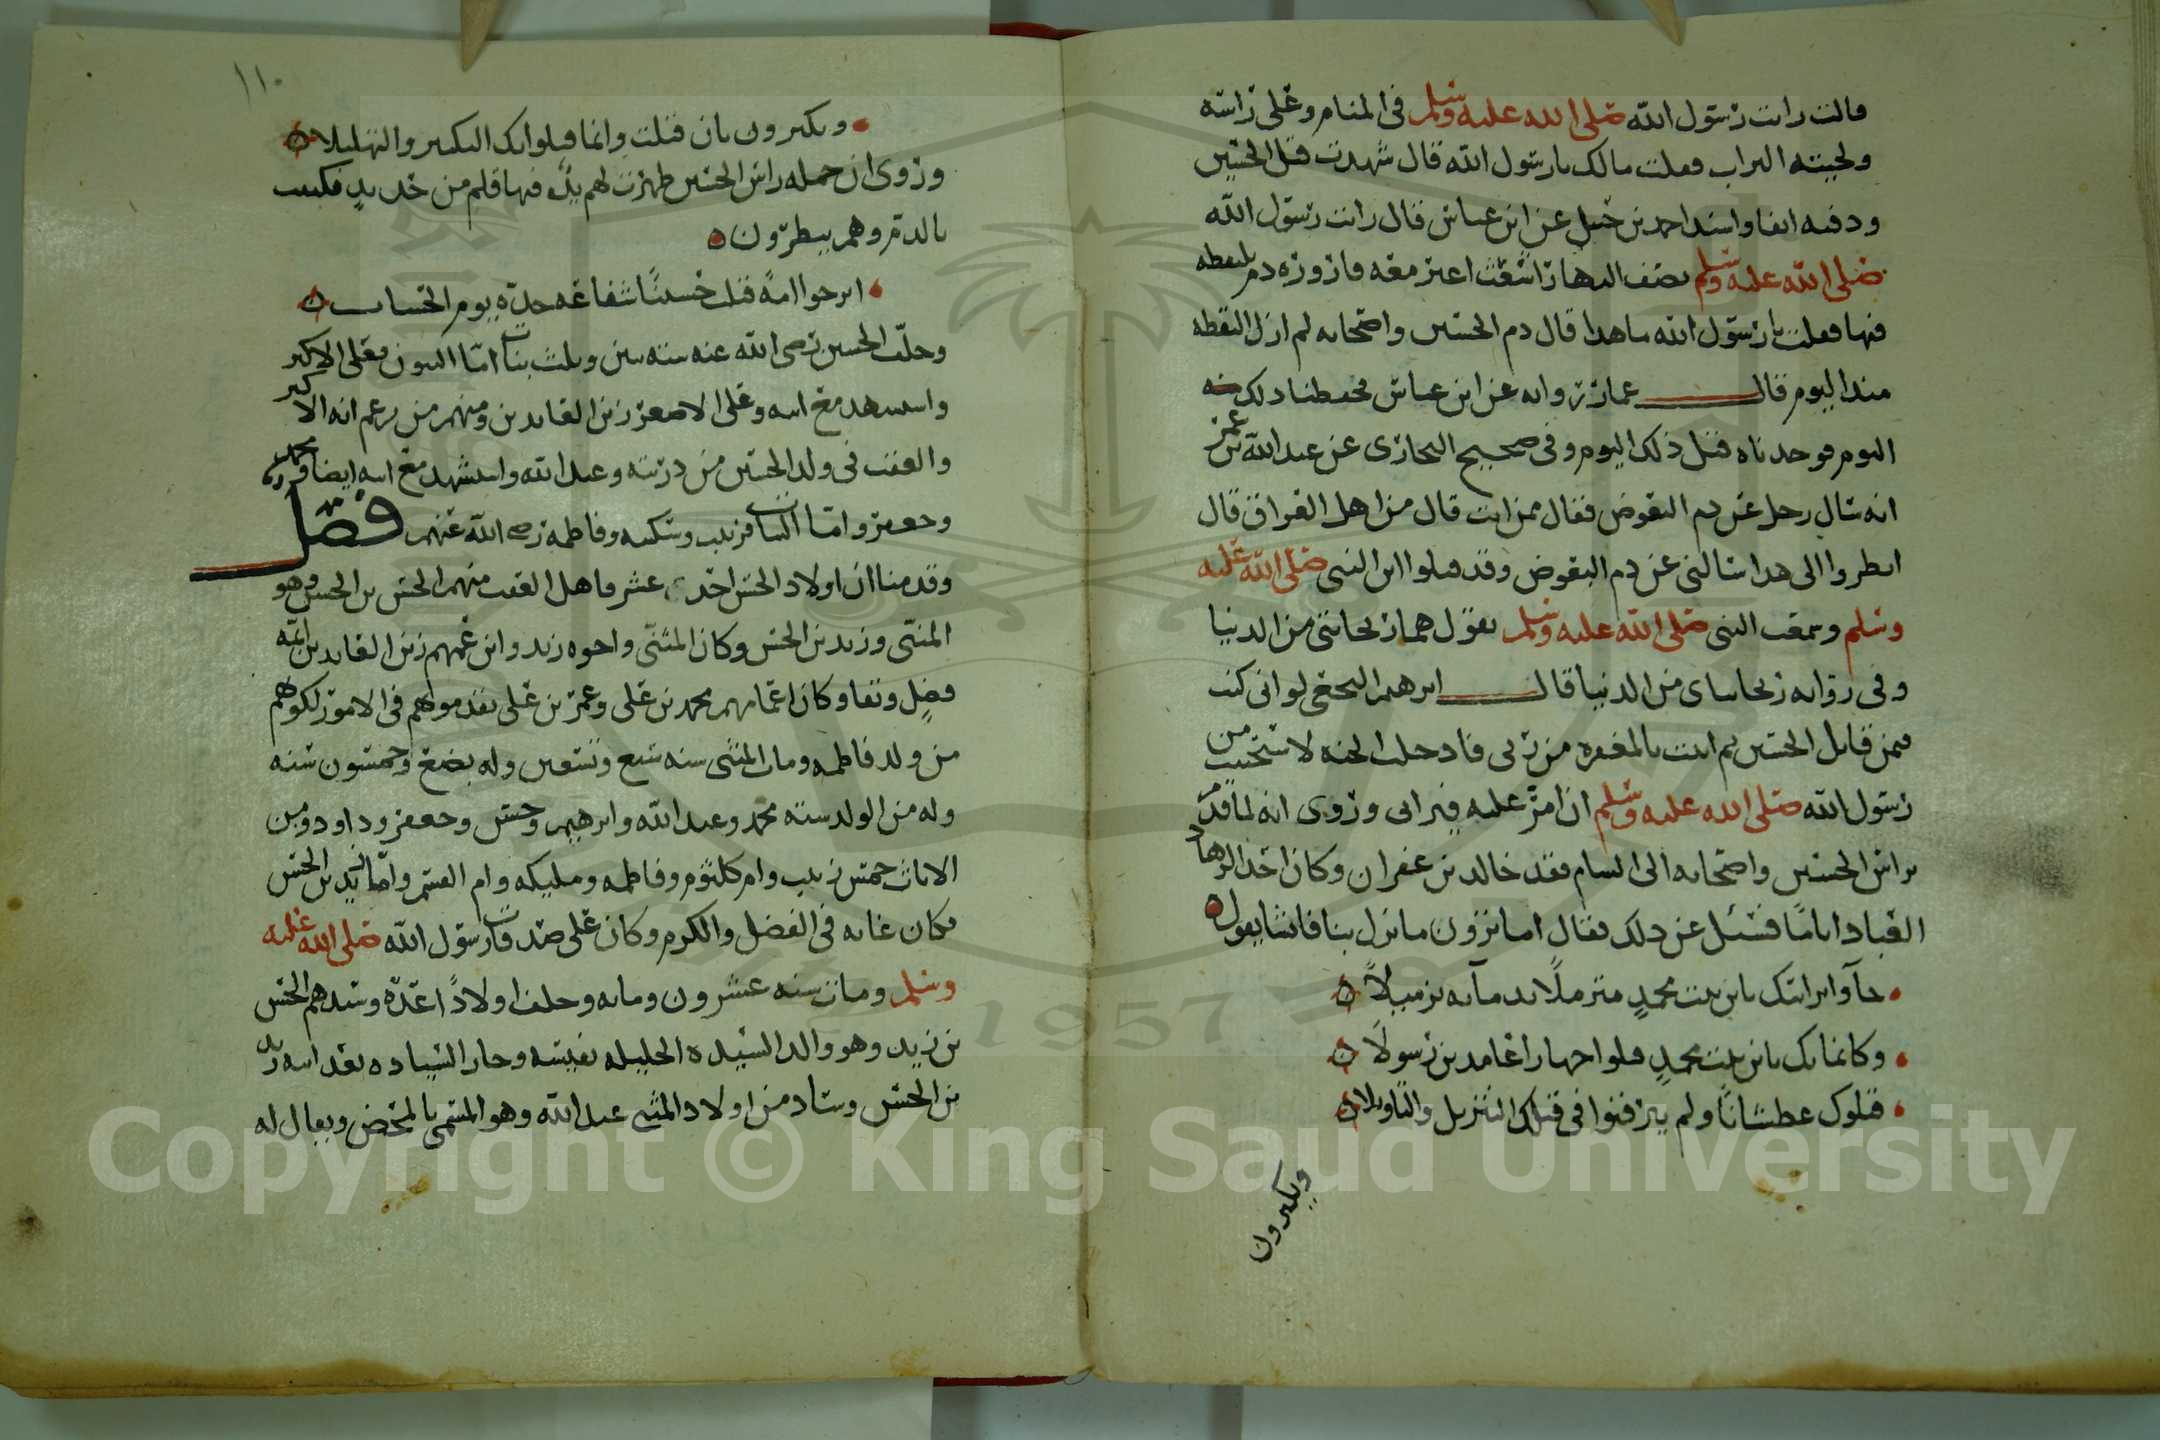 قالت رايت رسول الله صلى الله عليه وسلم في المنام وعلى راسه
ولحيته التراب فقلت مالك يارسول الله قال شهدت قتل الحسين
ودفنه انفا واسند احمد بن حنبل عن ابن عباس قال رايت رسول الله
صلى الله عليه وسلم نصف النهار اشعث اغبر معه قارورة دم يلتقطه
فيها فقلت يا رسول الله ما هذا قال دم الحسين واصحابه لم ازل التقطه
منذ اليوم قال عمار رواية عن ابن عباس فحفظنا ذلك
اليوم فوجدناه قتل ذلك اليوم وفي صحيح البخاري عن عبد الله بن عمر
انه سال رجل عن دم البعوض فقال ممن انت قال من اهل العراق قال
انظروا الى هذا سالني عن دم البعوض وقد قتلوا ابن النبي صلى الله عليه
وسلم وسمعت النبي صلى الله عليه وسلم يقول هما ريحانتي من الدنيا
وفي رواية ريحانتاي من الدنيا قال ابرهيم النخعي لو اني كنت
ممن قاتل الحسين ثم اتيت بالمغفرة من ربي فادخلت الجنة لاستحييت من
رسول الله صلى الله عليه وسلم ان امر عليه فيراني وروي انه لما قدم
براس الحسين واصحابه الى الشام فقد خالد بن عفران وكان احد الزهاد
العباد اياما فسئل عن ذلك فقال اما ترون ما نزل بنا فانشا يقول
جآوا براسك يابن بنت محمدٍ متزملًا بدمآيه تزميلاً
وكانما بك يابن بنت محمدٍ قتلوا جهارا عامدين رسولاً
قتلوك عطشانًا ولم يترقبوا في قتلك التنزيل والتاويلا
ويكبرون
١١٠
ويكبرون بان قتلت وانما قتلوا بك التكبير والتهليلا
وروي ان حملة راس الحسين ظهرت لهم يدٌ فيها قلم من حديدٍ فكتبت
بالدم وهم ينظرون
اترجوا امة قتلت حسينًا شفاعة جده يوم الحساب
وخلف الحسين رضي الله عنه ستة بنين وثلث بنات اما البنون فعلي الاكبر
واستشهد مع ابيه وعلي الاصغر زين العابدين ومنهم من يزعم انه الاكبر
والعقب في ولد الحسين من ذريته وعبد الله واستشهد مع ابيه ايضا ومحمد
وجعفر واما البنات فزينب وسكينه وفاطمه رضي الله عنهم فصل
وقد منا ان اولاد الحسن احدى عشر فاهل العقب منهم الحسن بن الحسن وهو
المثنى وزيد بن الحسن وكان المثنى واخوه زيد وابن عمهم زين العابدين ائمة
فضل وتقا وكان اعمامهم محمد بن علي وعمر بن علي يقدمونهم في الامور لكونهم
من ولد فاطمه ومات المثنى سنه سبع وتسعين وله بضع وخمسون سنه
وله من الولد ستة محمد وعبد الله وابرهيم وحسن وجعفر وداود ومن
الاناث خمس زينب وام كلثوم وفاطمه ومليكه وام القسم واما زيد بن الحسن
فكان غاية في الفضل والكرم وكان على صدقات رسول الله صلى الله عليه
وسلم ومات سنه عشرون ومايه وخلف اولادًا عدة وسيدهم الحسن
بن زيد وهو والد السيدة الجليله نفيسه وحاز السيادة بعد ابيه زيد
بن الحسن وساد من اولاد المثنى عبد الله وهو المسمى بالمحض ويقال له
Copyright © King Saud University
1957